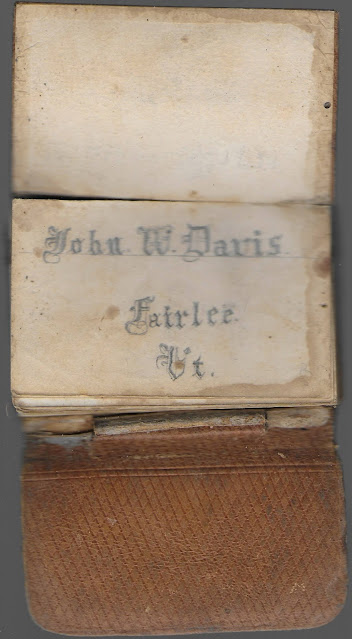 John. W. Davis.
Fairlee.
Vt.